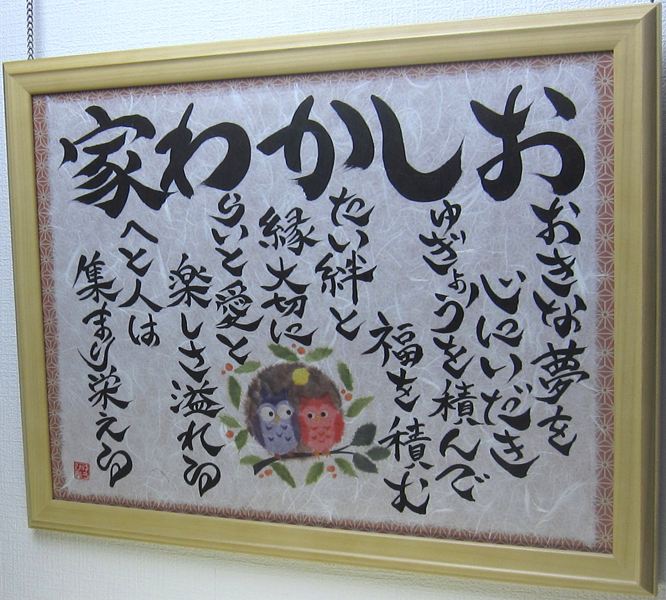 おしかわ家
おきな夢を
心にいだき
ゅぎょうを積んで
福を積む
たい絆と
縁大切に
らいと愛と
楽しさ溢れる
へと人は
集まり栄える